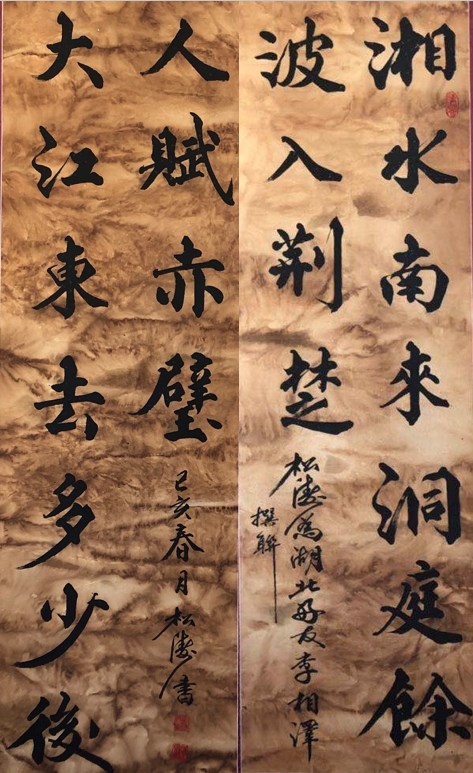 湘水南來洞庭餘
波入荊楚
松濤為湖北好友李相澤
撰聯
大江東去多少後
人賦赤壁
己亥春月松濤書